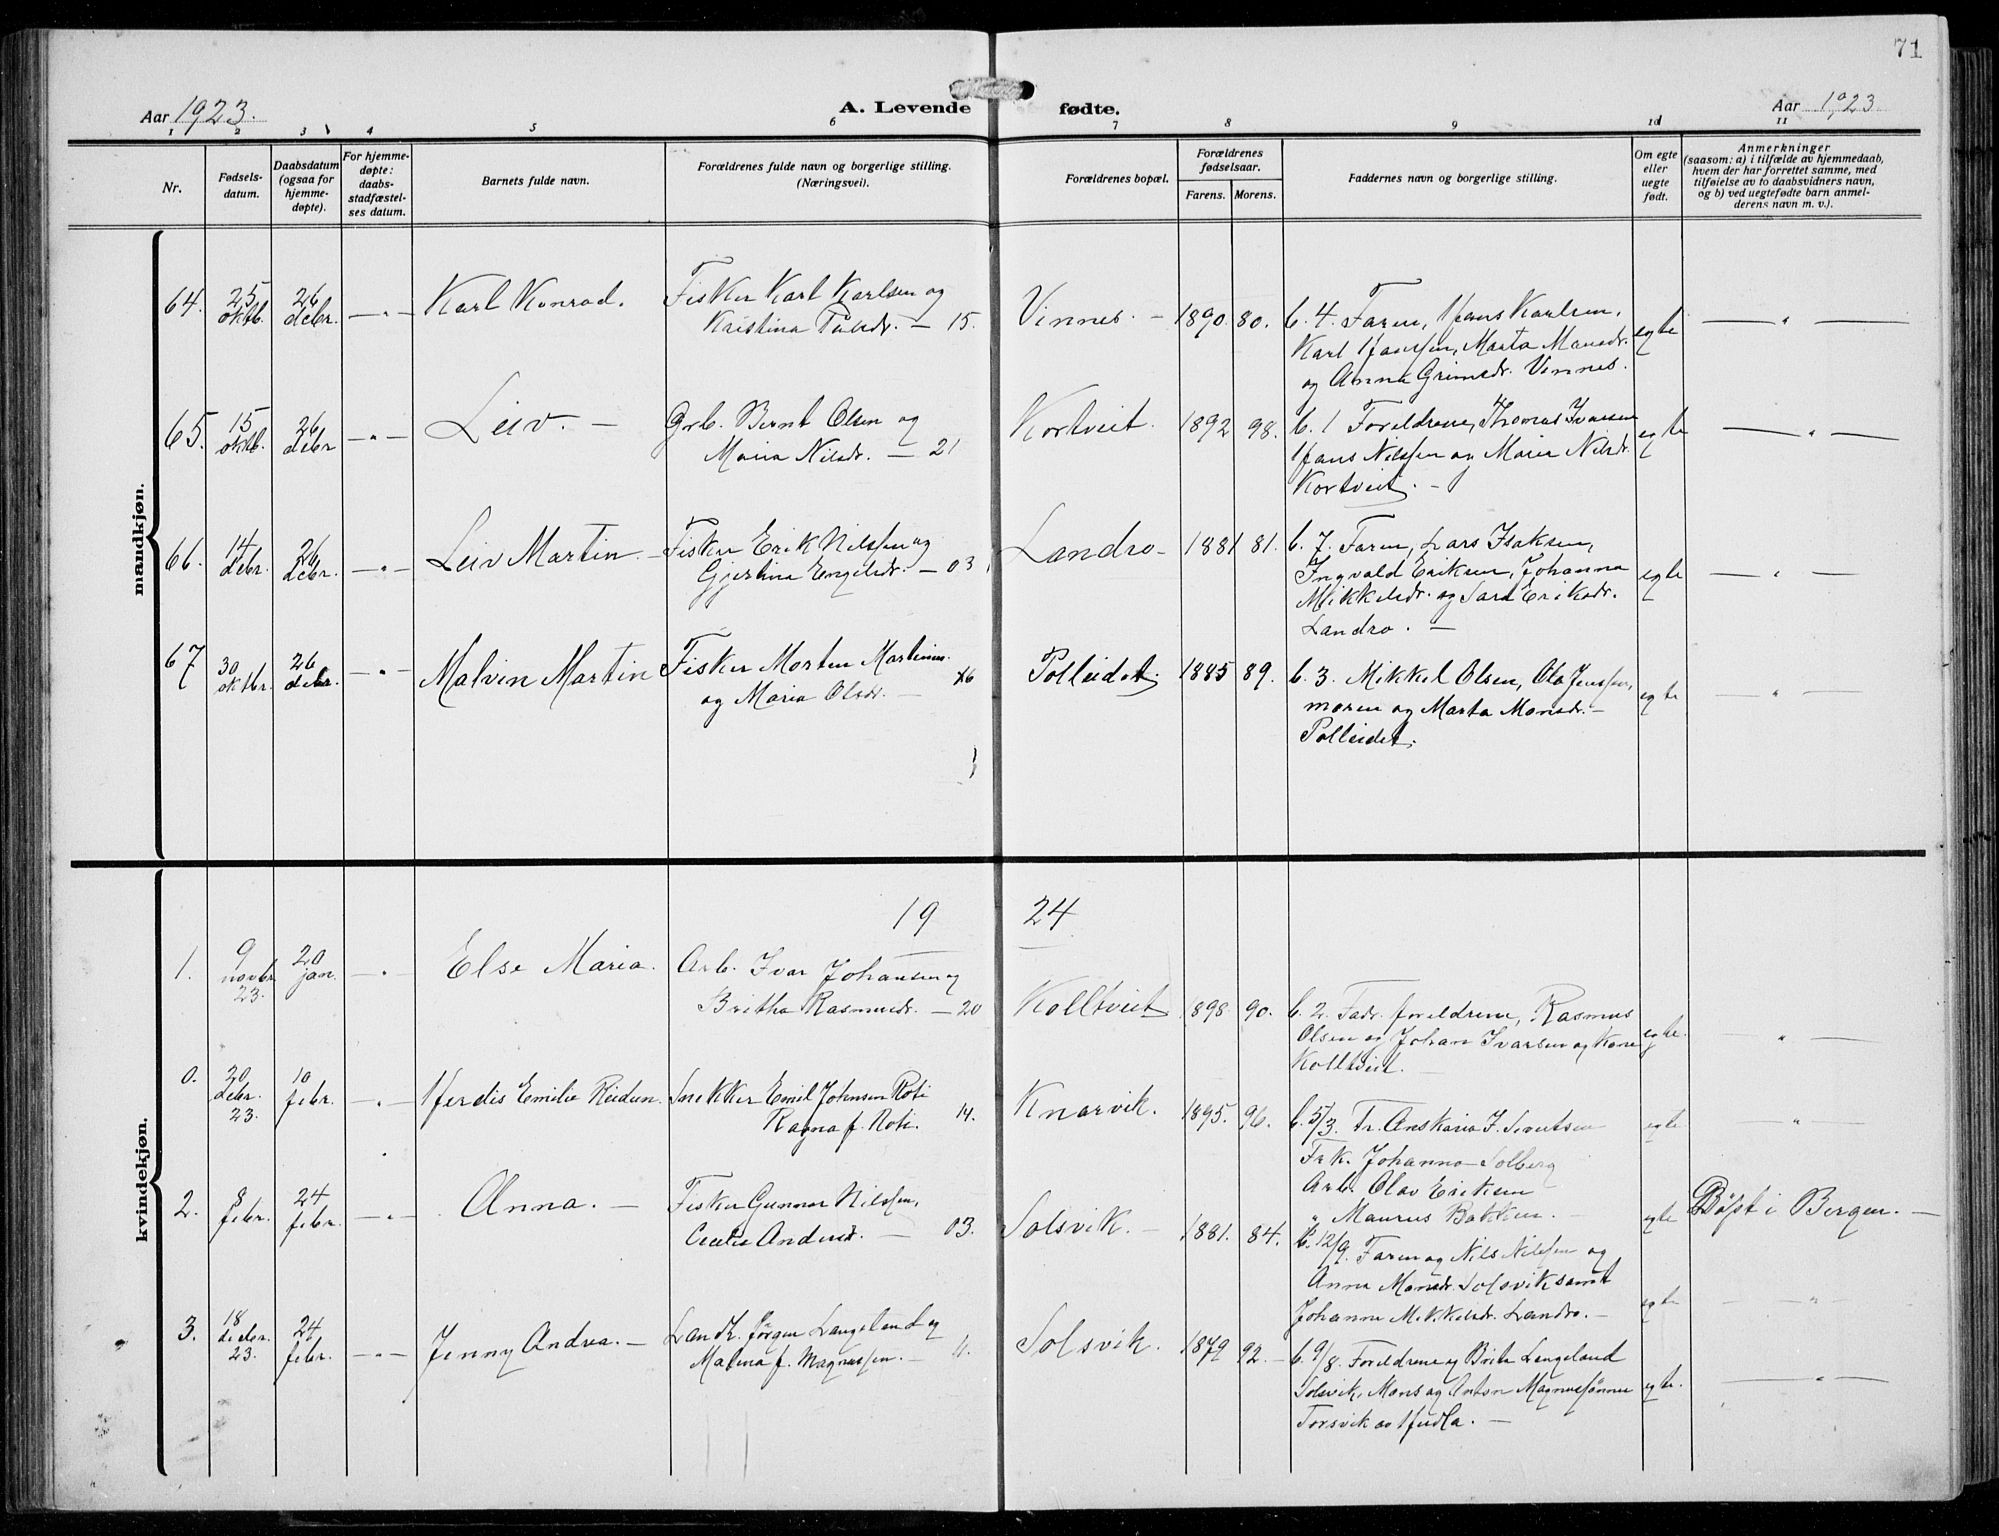 71
Aar 1923.
A. Levende fødte.
Aar 1923
1 2 3 4 5 6 7 8 9 10 11
Nr.
Fødsels-
datum.
Daabsdatum
(ogsaa for
hjemme-
døpte).
For hjemme-
døpte:
daabs-
stadfæstel-
ses datum.
Barnets fulde navn.
Forældrenes fulde navn og borgerlige stilling.
(Næringsvei).
Forældrenes bopæl.
Forældrenes
fødselsaar.
Farens. Morens.
Faddernes navn og borgerlige stilling.
Om egte
eller
uegte
født.
Anmerkninger
(saasom: a) i tilfælde av hjemmedaab,
hvem der har forrettet samme, med
tilføielse av to daabsvidners navn,
og b) ved uegtefødte barn anmel-
derens navn m. v.).
mandkjøn.
64.
25
oktb.
26
debr.
— „ —
Karl Konrad.
Fisker Karl Karlsen og
Kristina Pålsdr. — 15.
Vinnes. —
1890. 80.
b. 4. Faren, Hans Karlsen,
Karl Hanssen, Marta Monsdr.
og Anna Grimsdr. Vinnes.
egte
— „ —
65.
15
oktb.
26
debr
— „ —
Leiv. —
Grb. Bernt Olsen og
Maria Nilsdr. — 21
Kortveit.
1892 98.
b. 1 Foreldrene, Thomas Ivarsen
Hans Nilssen og Maria Nilsdr.
Kortveit. —
egte
— „ —
66.
14
debr.
26
debr.
— „ —
Leiv Martin. —
Fisker Erik Nilssen og
Gjertina Engelsdr. — 03
Landro —
1881 81.
b. 7. Faren, Lars Isaksen,
Ingvald Eriksen, Johanna
Mikkelsdr. og Sara Eriksdr.
Landro. —
egte
— „ —
67
30
oktbr.
26
debr.
— „ —
Malvin Martin
Fisker Morten Martinus.
og Maria Olsdr. — 16
Polleidet.
1885 89.
b. 3. Mikkel Olsen, Ola Jenssen,
moren og Marta Monsdr. —
Polleidet.
egte
— „ —
kvindekjøn.
19 24
1.
9
novbr
23.
20
jan.
— „ —
Else Maria.
Arb. Ivar Johansen og
Britha Rasmusdr. — 20
Kolltveit
1898. 90.
b. 2. Fadr. foreldrene, Rasmus
Olsen og Johan Ivarsen og kone
Kolltveit. —
egte.
„ —
0.
20
debr.
23.
10
febr.
— „ —
Herdis Emilie Reidun.
Snekker Emil Johnsen Roti
Ragna f. Roti. 14.
Knarvik.
1895. 96.
b. 5/3. Fr. Anskaria J. Sivertsen
Frk. Johanna Solberg
Arb. Olav Eriksen
„ Maurus Bakken. —
egte
— „ —
2.
8
febr.
24
febr.
— „ —
Anna. —
Fisker Gunnar Nilssen,
Cecilie Andersdr. — 03.
Solsvik. —
1881. 84.
b. 12/9. Faren og Nils Nilssen og
Anna Monsdr. Solsvik samt
Johanna Mikkelsdr. Landro. —
egte
Døpt i Bergen. —
egte
— „
3.
18
debr.
23.
24
febr.
— „ —
Jenny Andrea. —
Landh. Jørgen Langeland og
Malena f. Magnussen. — 11.
Solsvik.
1879 92. —
b. 9/8. Foreldrene og Brita Langeland
Solsvik, Mons og Anton Magnussønner
Torsvik av Hudla. —
egte.
— „ —